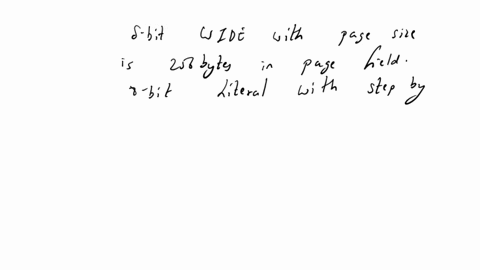 8-bit WIDE with page size
is 256 bytes in page field.
8-bit Literal with step by